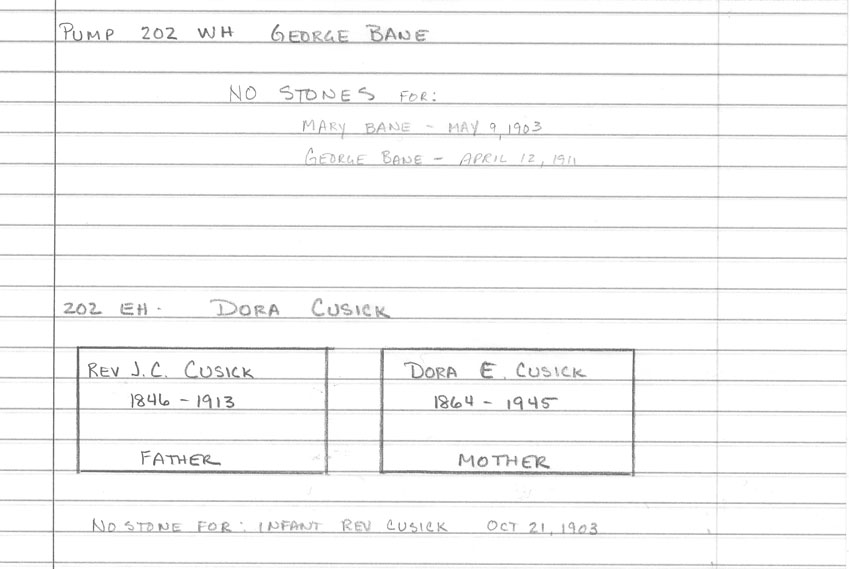 PUMP 202 WH GEORGE BANE
NO STONES FOR:
MARY BANE - MAY 9, 1903
GEORGE BANE - APRIL 12, 1911
202 EH. DORA CUSICK
REV J.C. CUSICK
1846 - 1913
FATHER
DORA E. CUSICK
1864 - 1945
MOTHER
NO STONE FOR: INFANT REV CUSICK OCT 21, 1903